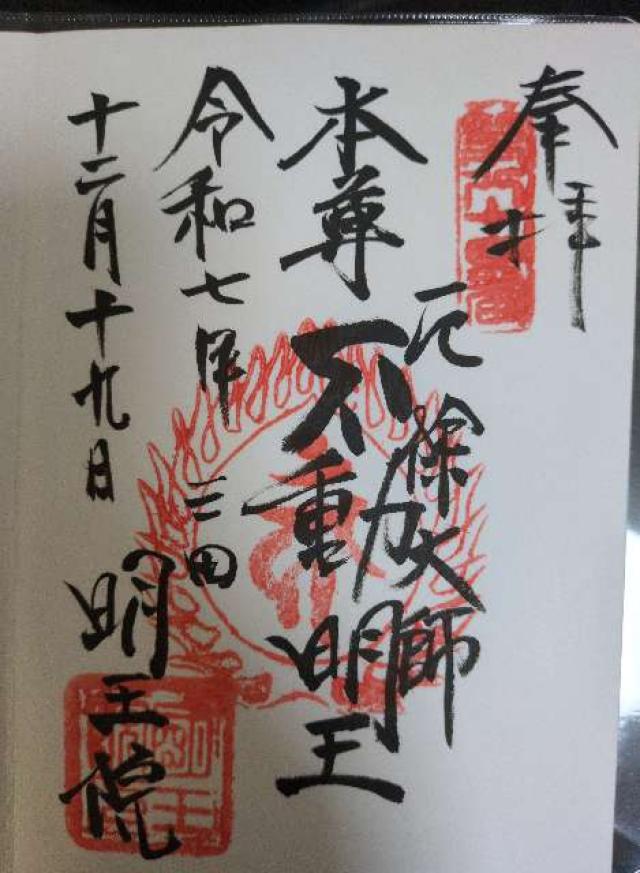 奉拝
元三大師
本尊不動明王
令和七年
十二月十九日
三田
明王院